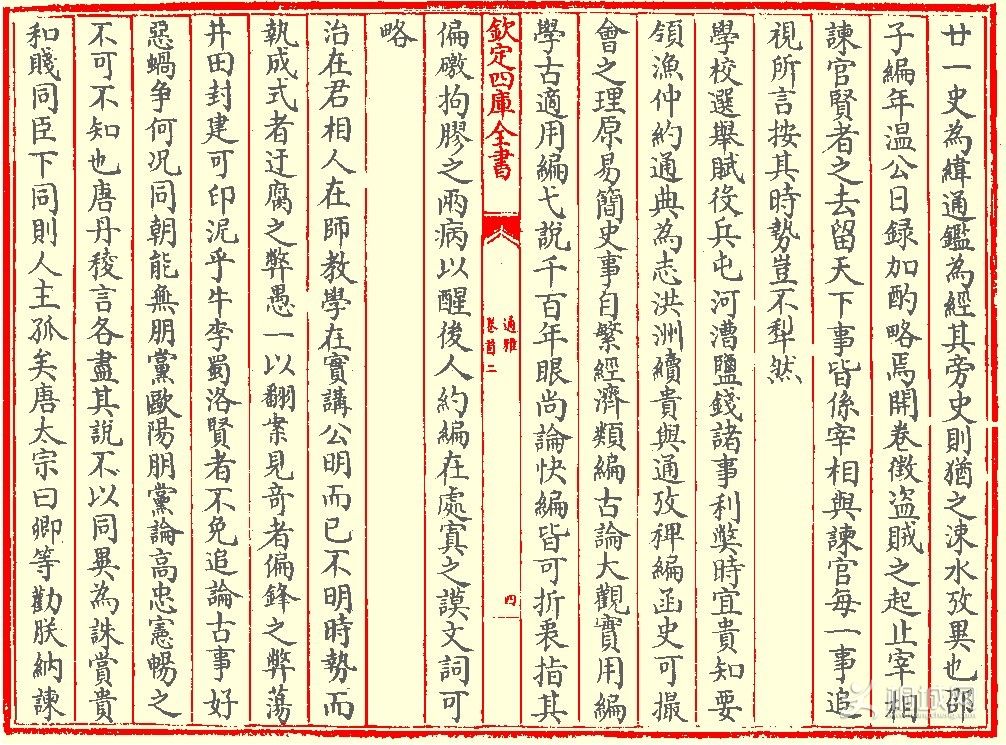 廿一史為緯通鑑為經其旁史則猶之涑水攷異也邵
子編年温公日録加酌略焉開卷徴盗賊之起止宰相
諫官賢者之去留天下事皆係宰相與諫官每一事追
視所言按其時勢豈不犁然
學校選舉賦役兵屯河漕鹽錢諸事利弊時宜貴知要
領漁仲約通典為志洪洲續貴與通攷稗編函史可撮
會之理原易簡史事自繁經濟類編古論大觀實用編
學古適用編弋說千百年眼尚論快編皆可折衷指其
欽定四庫全書
通雅
卷首二
四
偏礉拘膠之兩病以醒後人約編在處寘之謨文詞可
略
治在君相人在師教學在實講公明而已不明時勢而
執成式者迂腐之弊愚一以翻案見竒者偏鋒之弊蕩
井田封建可印泥乎牛李蜀洛賢者不免追論古事好
惡蝸争何况同朝能無朋黨歐陽朋黨論高忠憲暢之
不可不知也唐丹稜言各盡其說不以同異為誅賞貴
和賤同臣下同則人主孤矣唐太宗曰卿等勸朕納諫